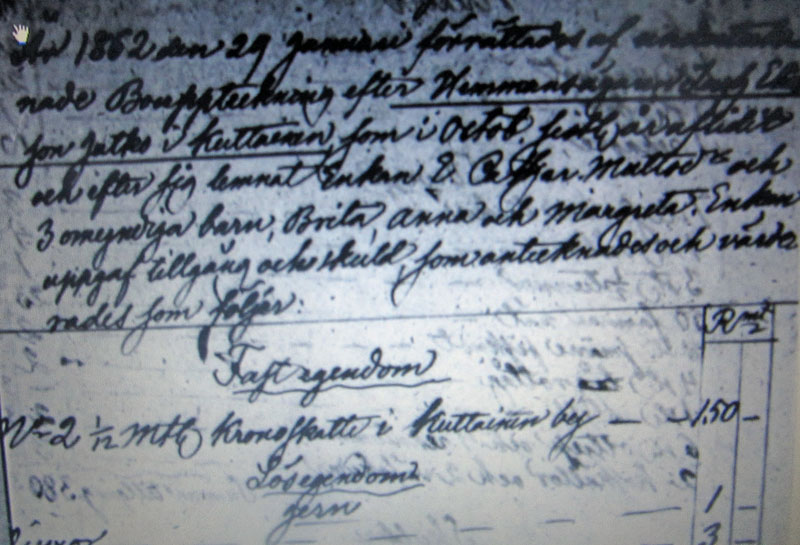 År 1862 den 29 januari förrättades af
nade Bouppteckning efter Hemmansägaren
son Jatko i Kuttainen, som i Octob. sistl. år aflidit
och efter sig lemnat Enkan E. Mattsd. och
3 omyndiga barn, Brita, Anna och Margreta. Enkan
uppgaf tillgång och skuld, som antecknades och värde
rades som följer:
Rmt
Fast egendom
No 2 1/12 mtl Kronoskatte i Kuttainen by — — 150 —
Lösegendom
Jern — — 1 —
3